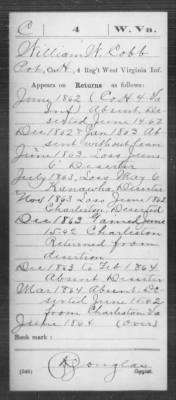 C 4 W. Va.
William W. Cobb
Co. H, 4 Reg't West Virginia Inf.
Appears on Returns as follows:
June 1862 (Co H 4 Va
Inf) Absent De-
serted June 1862
Dec 1862 & Jan 1863 Ab
sent without leave
June 1863. Loss June
Deserter
July 1863, Loss May 6
Kanawha, Deserter
Nov 1863 Loss June 1862
Charleston, Deserted
Dec 1863 Gained June
1562 Charleston
Returned from
desertion
Dec 1863 to Feb 1864
Absent Deserter
Mar 1864 Absent De-
serted June 1562
from Charleston Va
June 1864 (Over)
Book mark:
Douglas
(546) Copyist.